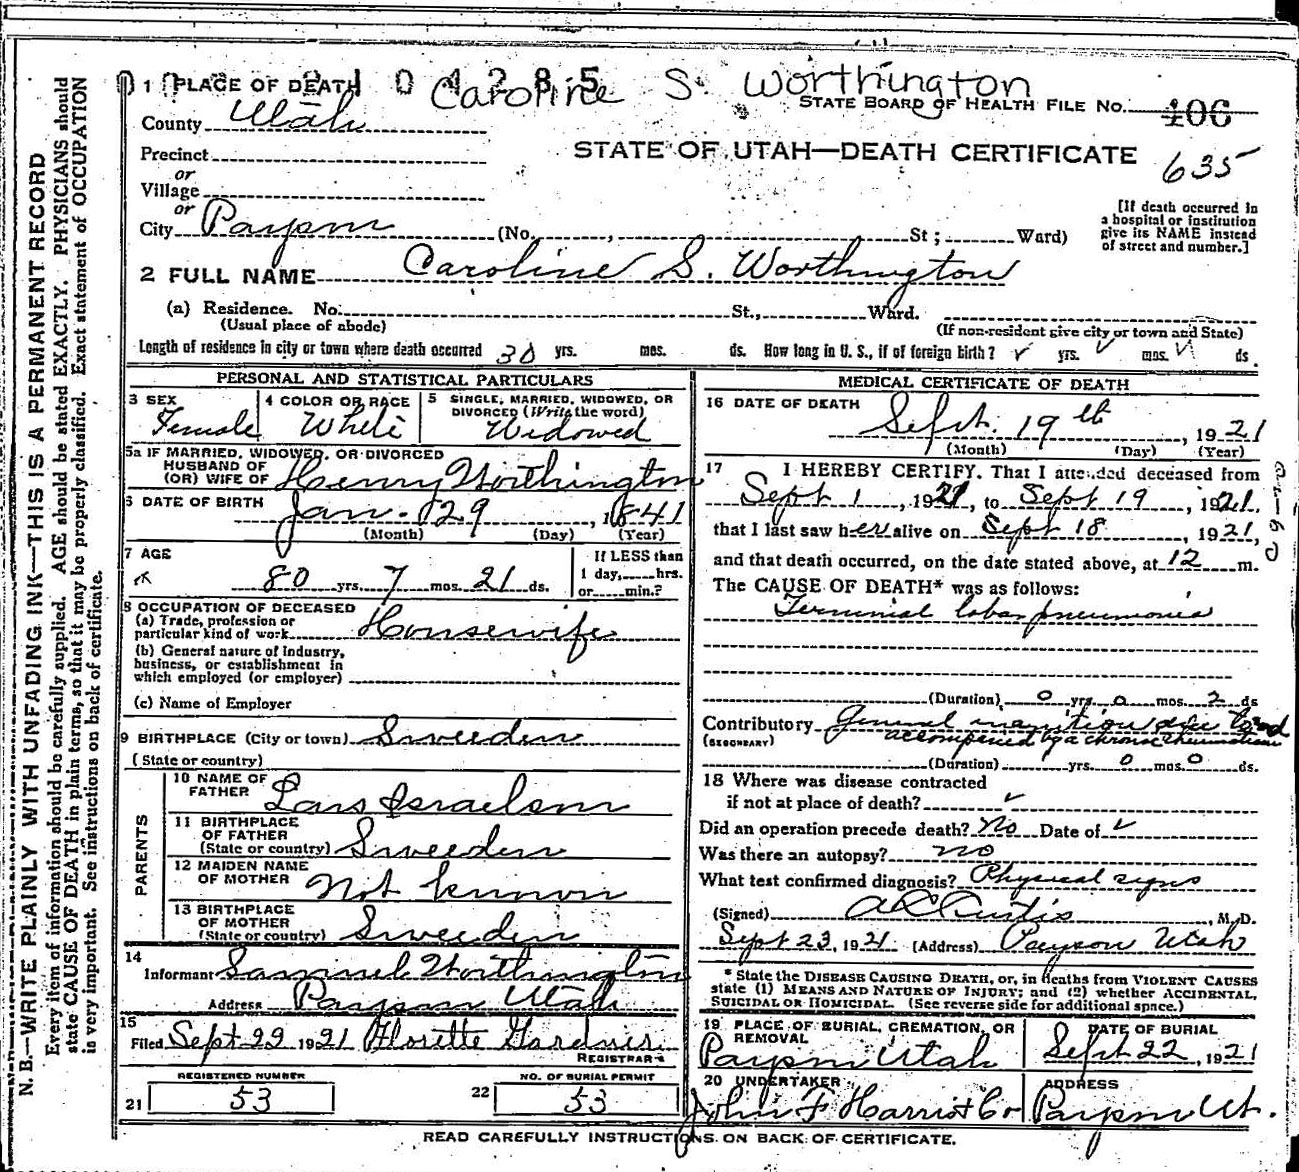 0 1 PLACE OF DEATH 1 0 4 2 8 5 Caroline S. Worthington
County Utah STATE BOARD OF HEALTH FILE NO. 406
Precinct STATE OF UTAH—DEATH CERTIFICATE 635
or
Village
or
City Payson (No. , St; Ward)
[If death occurred in
a hospital or institution
give its NAME instead
of street and number.]
2 FULL NAME Caroline S. Worthington
(a) Residence. No. St., Ward.
(Usual place of abode) (If non-resident give city or town and State)
Length of residence in city or town where death occurred 30 yrs. mos. ds. How long in U. S., if of foreign birth? ✓ yrs. ✓ mos. ✓ ds
PERSONAL AND STATISTICAL PARTICULARS
3 SEX 4 COLOR OR RACE 5 SINGLE, MARRIED, WIDOWED, OR
DIVORCED (Write the word)
Female White Widowed
5a IF MARRIED, WIDOWED, OR DIVORCED
HUSBAND OF
(OR) WIFE OF Henry Worthington
6 DATE OF BIRTH Jan. 29, 1841
(Month) (Day) (Year)
7 AGE If LESS than
80 yrs. 7 mos. 21 ds. 1 day, hrs.
or min.?
8 OCCUPATION OF DECEASED
(a) Trade, profession or
particular kind of work Housewife
(b) General nature of industry,
business, or establishment in
which employed (or employer)
(c) Name of Employer
9 BIRTHPLACE (City or town) Sweeden
(State or country)
PARENTS
10 NAME OF
FATHER Lars Israelson
11 BIRTHPLACE
OF FATHER
(State or country) Sweeden
12 MAIDEN NAME
OF MOTHER Not known
13 BIRTHPLACE
OF MOTHER
(State or country) Sweeden
14
Informant Samuel Worthington
Address Payson Utah
15
Filed Sept 22 1921 Florette Gardner
REGISTRAR
REGISTERED NUMBER NO. OF BURIAL PERMIT
21 53 22 53
MEDICAL CERTIFICATE OF DEATH
16 DATE OF DEATH Sept. 19th, 1921
(Month) (Day) (Year)
17 I HEREBY CERTIFY. That I attended deceased from
Sept 1, 1921, to Sept 19, 1921.
that I last saw her alive on Sept 18, 1921,
and that death occurred, on the date stated above, at 12 m.
The CAUSE OF DEATH* was as follows:
Terminial lobar pneumonia
(Duration), 0 yrs. 0 mos. 2 ds
Contributory General
(SECONDARY) accompanied by a chronic rheumatism
(Duration) yrs. 0 mos. 0 ds.
18 Where was disease contracted
if not at place of death? ✓
Did an operation precede death? No Date of ✓
Was there an autopsy? no
What test confirmed diagnosis? Physical signs
(Signed) A C Curtis, M. D.
Sept 23, 1921 (Address) Payson Utah
* State the DISEASE CAUSING DEATH, or, in deaths from VIOLENT CAUSES
state (1) MEANS AND NATURE OF INJURY; and (2) whether ACCIDENTAL,
SUICIDAL OR HOMICIDAL. (See reverse side for additional space.)
19 PLACE OF BURIAL, CREMATION, OR DATE OF BURIAL
REMOVAL
Payson Utah Sept 22, 1921
20 UNDERTAKER ADDRESS
John F Harris & Co Payson Ut.
READ CAREFULLY INSTRUCTIONS ON BACK OF CERTIFICATE.
N. B.—WRITE PLAINLY WITH UNFADING INK—THIS IS A PERMANENT RECORD
Every item of information should be carefully supplied. AGE should be stated EXACTLY. PHYSICIANS should
state CAUSE OF DEATH in plain terms, so that it may be properly classified. Exact statement of OCCUPATION
is very important. See instructions on back of certificate.